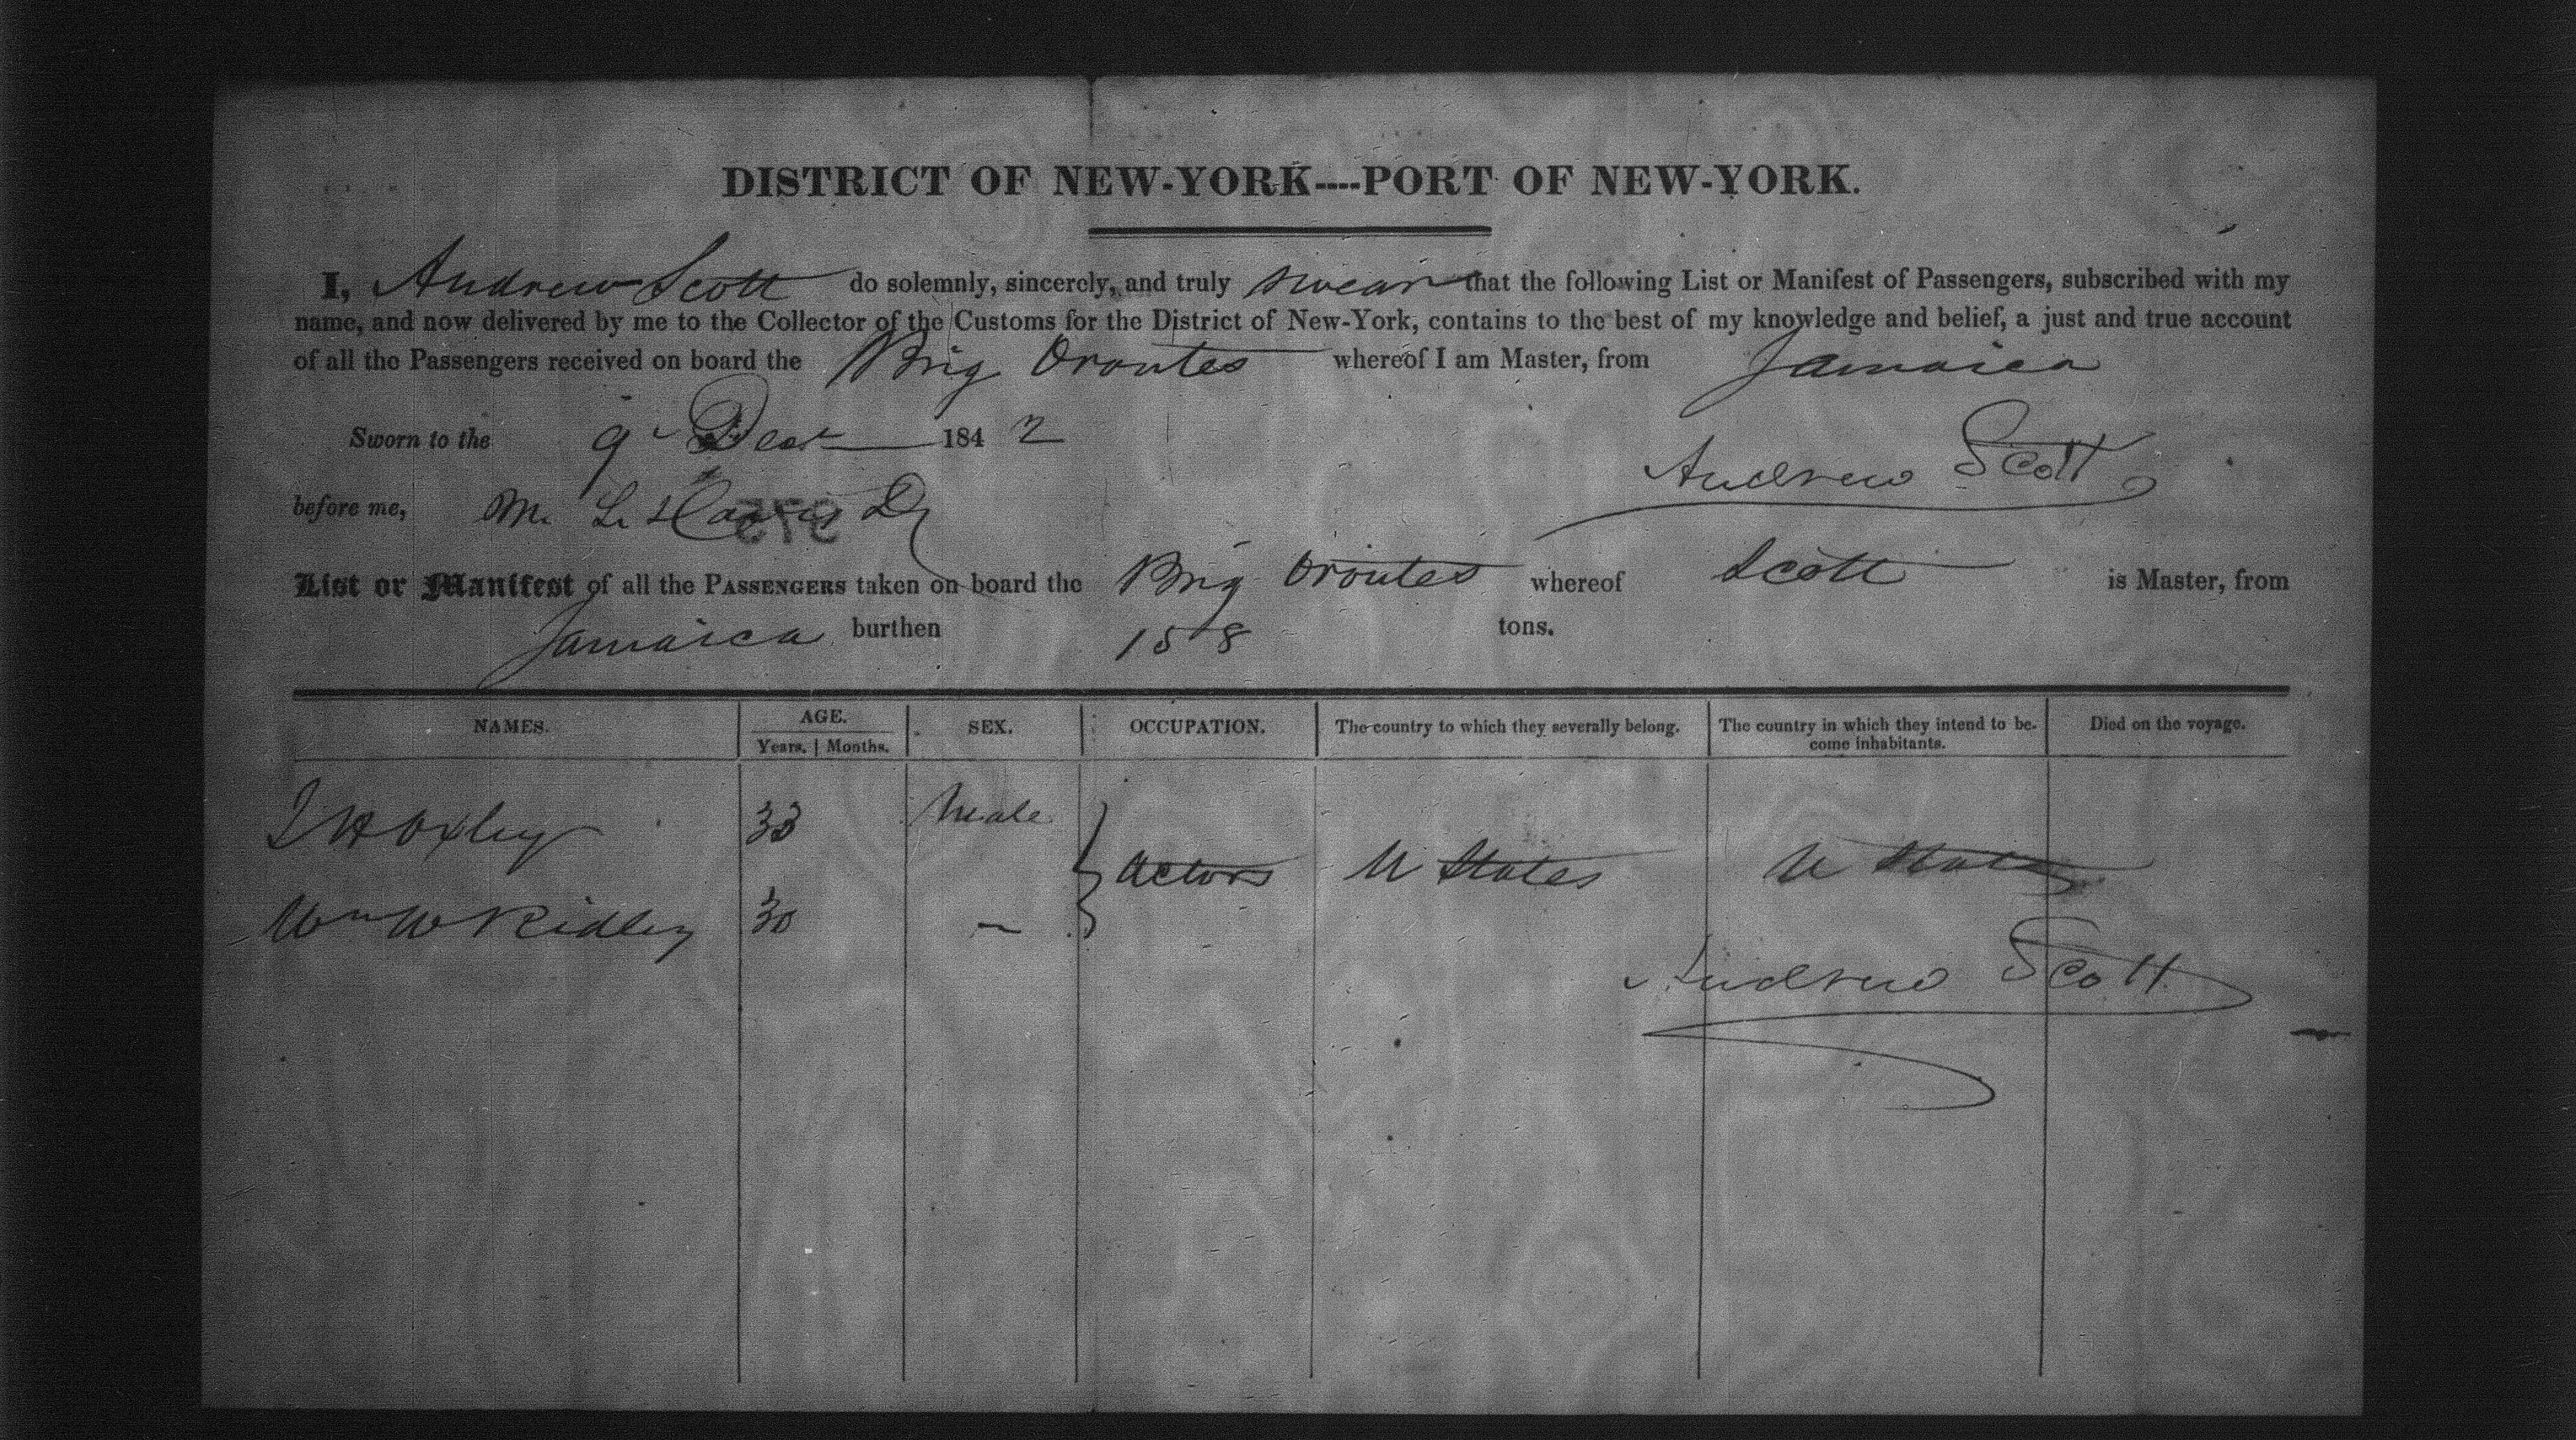 DISTRICT OF NEW-YORK----PORT OF NEW-YORK.
I, Andrew Scott do solemnly, sincerely, and truly swear that the following List or Manifest of Passengers, subscribed with my
name, and now delivered by me to the Collector of the Customs for the District of New-York, contains to the best of my knowledge and belief, a just and true account
of all the Passengers received on board the Brig Orontes whereof I am Master, from Jamaica
Sworn to the 9 Decr 1842
Andrew Scott
before me, M. L. Davis D
List or Manifest of all the PASSENGERS taken on board the Brig Orontes whereof Scott is Master, from
Jamaica burthen 158 tons.
NAMES. AGE. SEX. OCCUPATION. The country to which they severally belong. The country in which they intend to be- Died on the voyage.
Years. | Months. come inhabitants.
J H Oxley 33 Male
Actors U States U States
Wm W Ridley 30 —
Andrew Scott